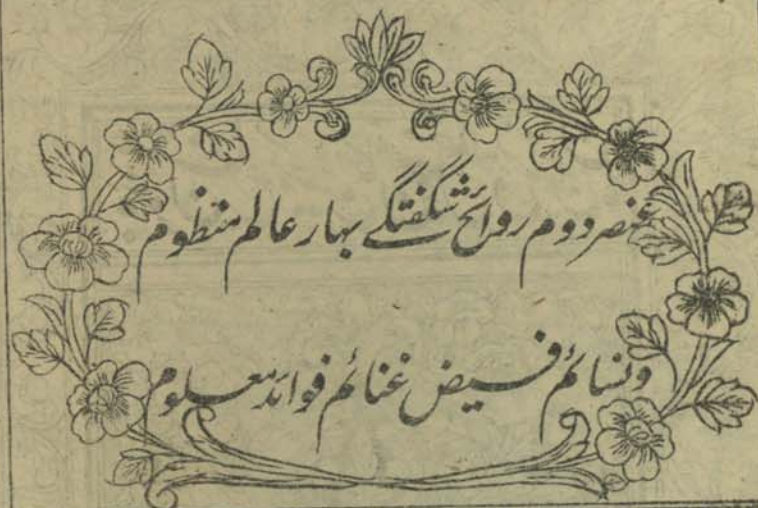 عنصر دوم روائح شگفتگے بہار عالم منظوم
و نسائم فیض غنائم فوائد معلوم